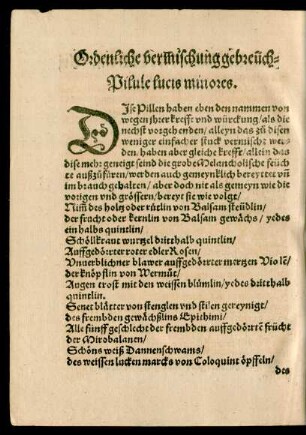 Ordenliche vermischung gebreüch-
Pilule lucis minores.
DIse Pillen haben eben den nammen von
wegen jhrer krefft vnd würckung / als die
nechst vorgehenden / alleyn das zů disen
weniger einfacher stuck vermischt wer-
den. haben aber gleiche krefft / allein das
dise mehr geneigt seind die grobe Melancholische feüch
te auszůfüren / werden auch gemeynklich bereyttet vñ
im brauch gehalten / aber doch nit als gemeyn wie die
vorigen vnd grössern / bereyt sie wie volgt /
Nim des holtz oder rütlin von Balsam steüdlin /
der frucht oder kernlin von Balsam gewächs / yedes
ein halbs quintlin /
Schöllkraut wurtzel dritthalb quintlin /
Auffgedörrter roter edler Rosen /
Vnuerblichner blawer auffgedörrter mertzen Violē /
der knöpflin von Wermůt /
Augen trost mit den weissen blümlin / yedes dritthalb
quintlin.
Senet blätter von stenglen vnd stilen gereynigt /
des frembden gewächslins Epithimi /
Alle fünff geschlecht der frembden auffgedörrtē frücht
der Mirobalanen /
Schöns weiß Dannenschwams /
des weissen lucken marcks von Coloquint öpffeln /
des